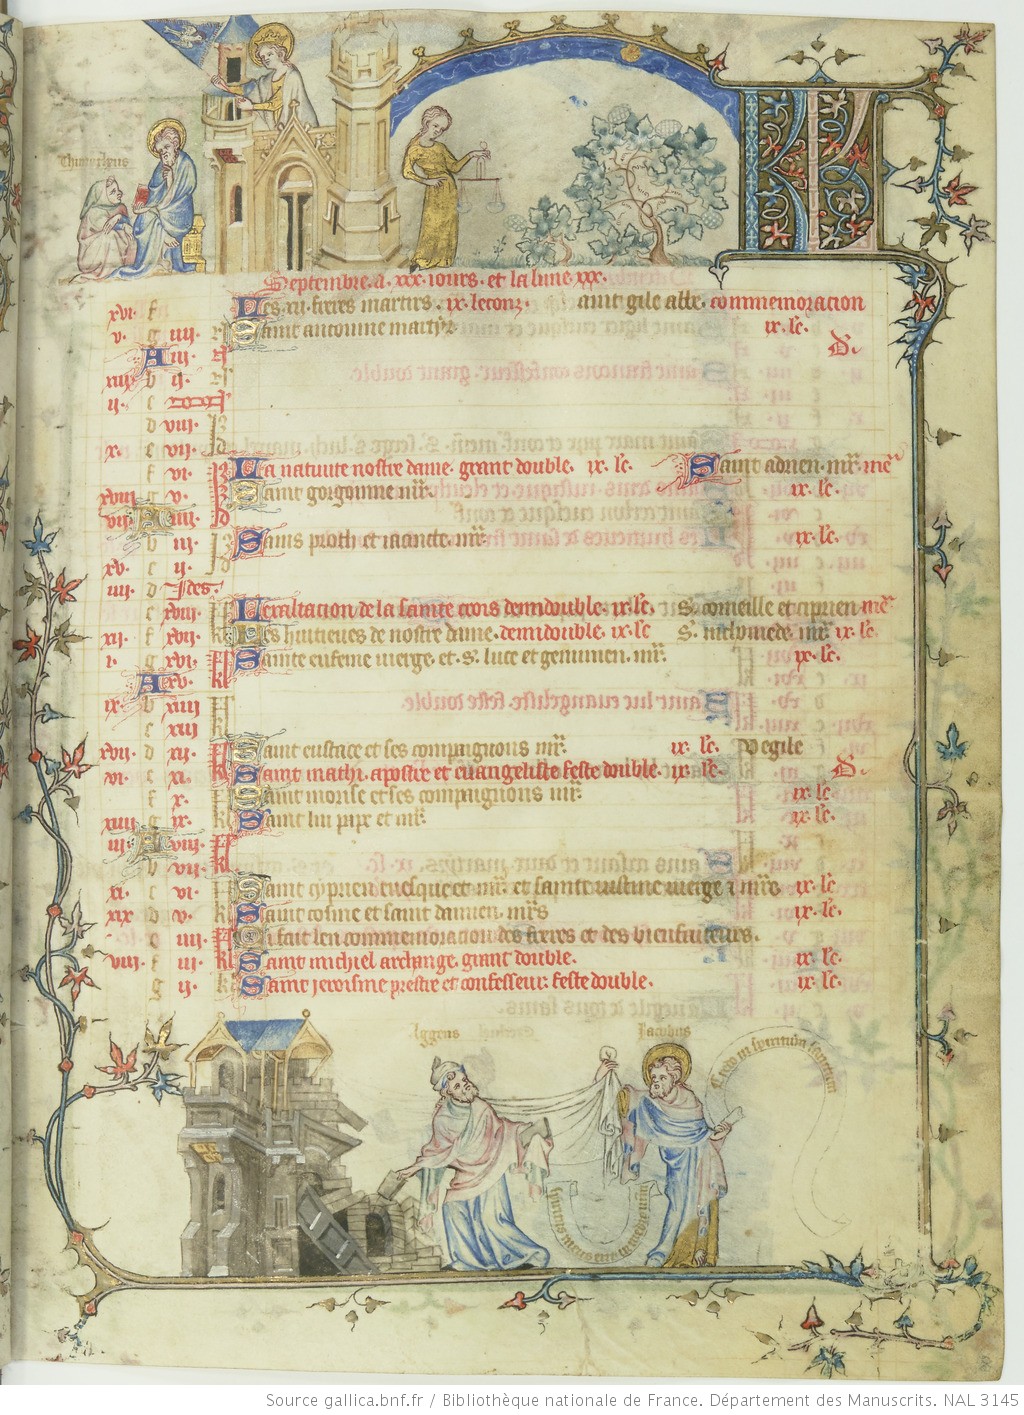 Thimotheus
Septembre. a. xxx. iours. et la lune xxx.
xvi. f Des xii. freres martirs. ix. lecons. saint gile abbe. commemoracion
v. g iiii. Saint antonine martyr ix. lc.
A iii. D.
xiii b ii.
ii. c
d viii.
x. e vii.
f vi. La nativite nostre dame. grant double. ix. lc. Saint adrien. mr. me
xviii g v. Saint gorgonne mr. ix. lc.
vii A iiii.
b iii. Sains proth et iacincte. mr. ix. lc.
xv. c ii.
iiii. d Ydes.
e xviii Lexaltacion de la sainte crois demidouble. ix. lc. S. corneille et ciprien me
xii. f xvii. Les huitieves de nostre dame. demidouble. ix. lc S. nichomede. mr. ix. lc.
i. g xvi. Sainte eufeme vierge. et. S. luce et geminien. mr. ix. lc.
A xv.
ix. b xiiii
c xiii
xvii. d xii. Saint eustace et ses compaignons mr. ix. lc. Vegile
vi. e xi. Saint mathi. apostre et euvangeliste feste double. ix. lc. D.
f x. Saint morise et ses compaignons mr. ix. lc
xiiii g ix. Saint lin pape et mr. ix. lc.
iii. A viii.
b vii.
xi. c vi. Saint cyprien evesque et mr. et sainte iustine vierge i mre ix. lc
xix d v. Saint cosme et saint damien. mrs ix. lc.
e iiii. Ci fait len commemoracion des freres et des bienfaiteurs.
viii. f iii. Saint michiel archange. grant double. ix. lc.
g ii. Saint jeroisme prestre et confesseur. feste double. ix. lc.
Aggeus Jacobus
Credo in spiritum sanctum
Spiritus meus erit in medio vestrum
Source gallica.bnf.fr / Bibliothèque nationale de France. Département des Manuscrits. NAL 3145